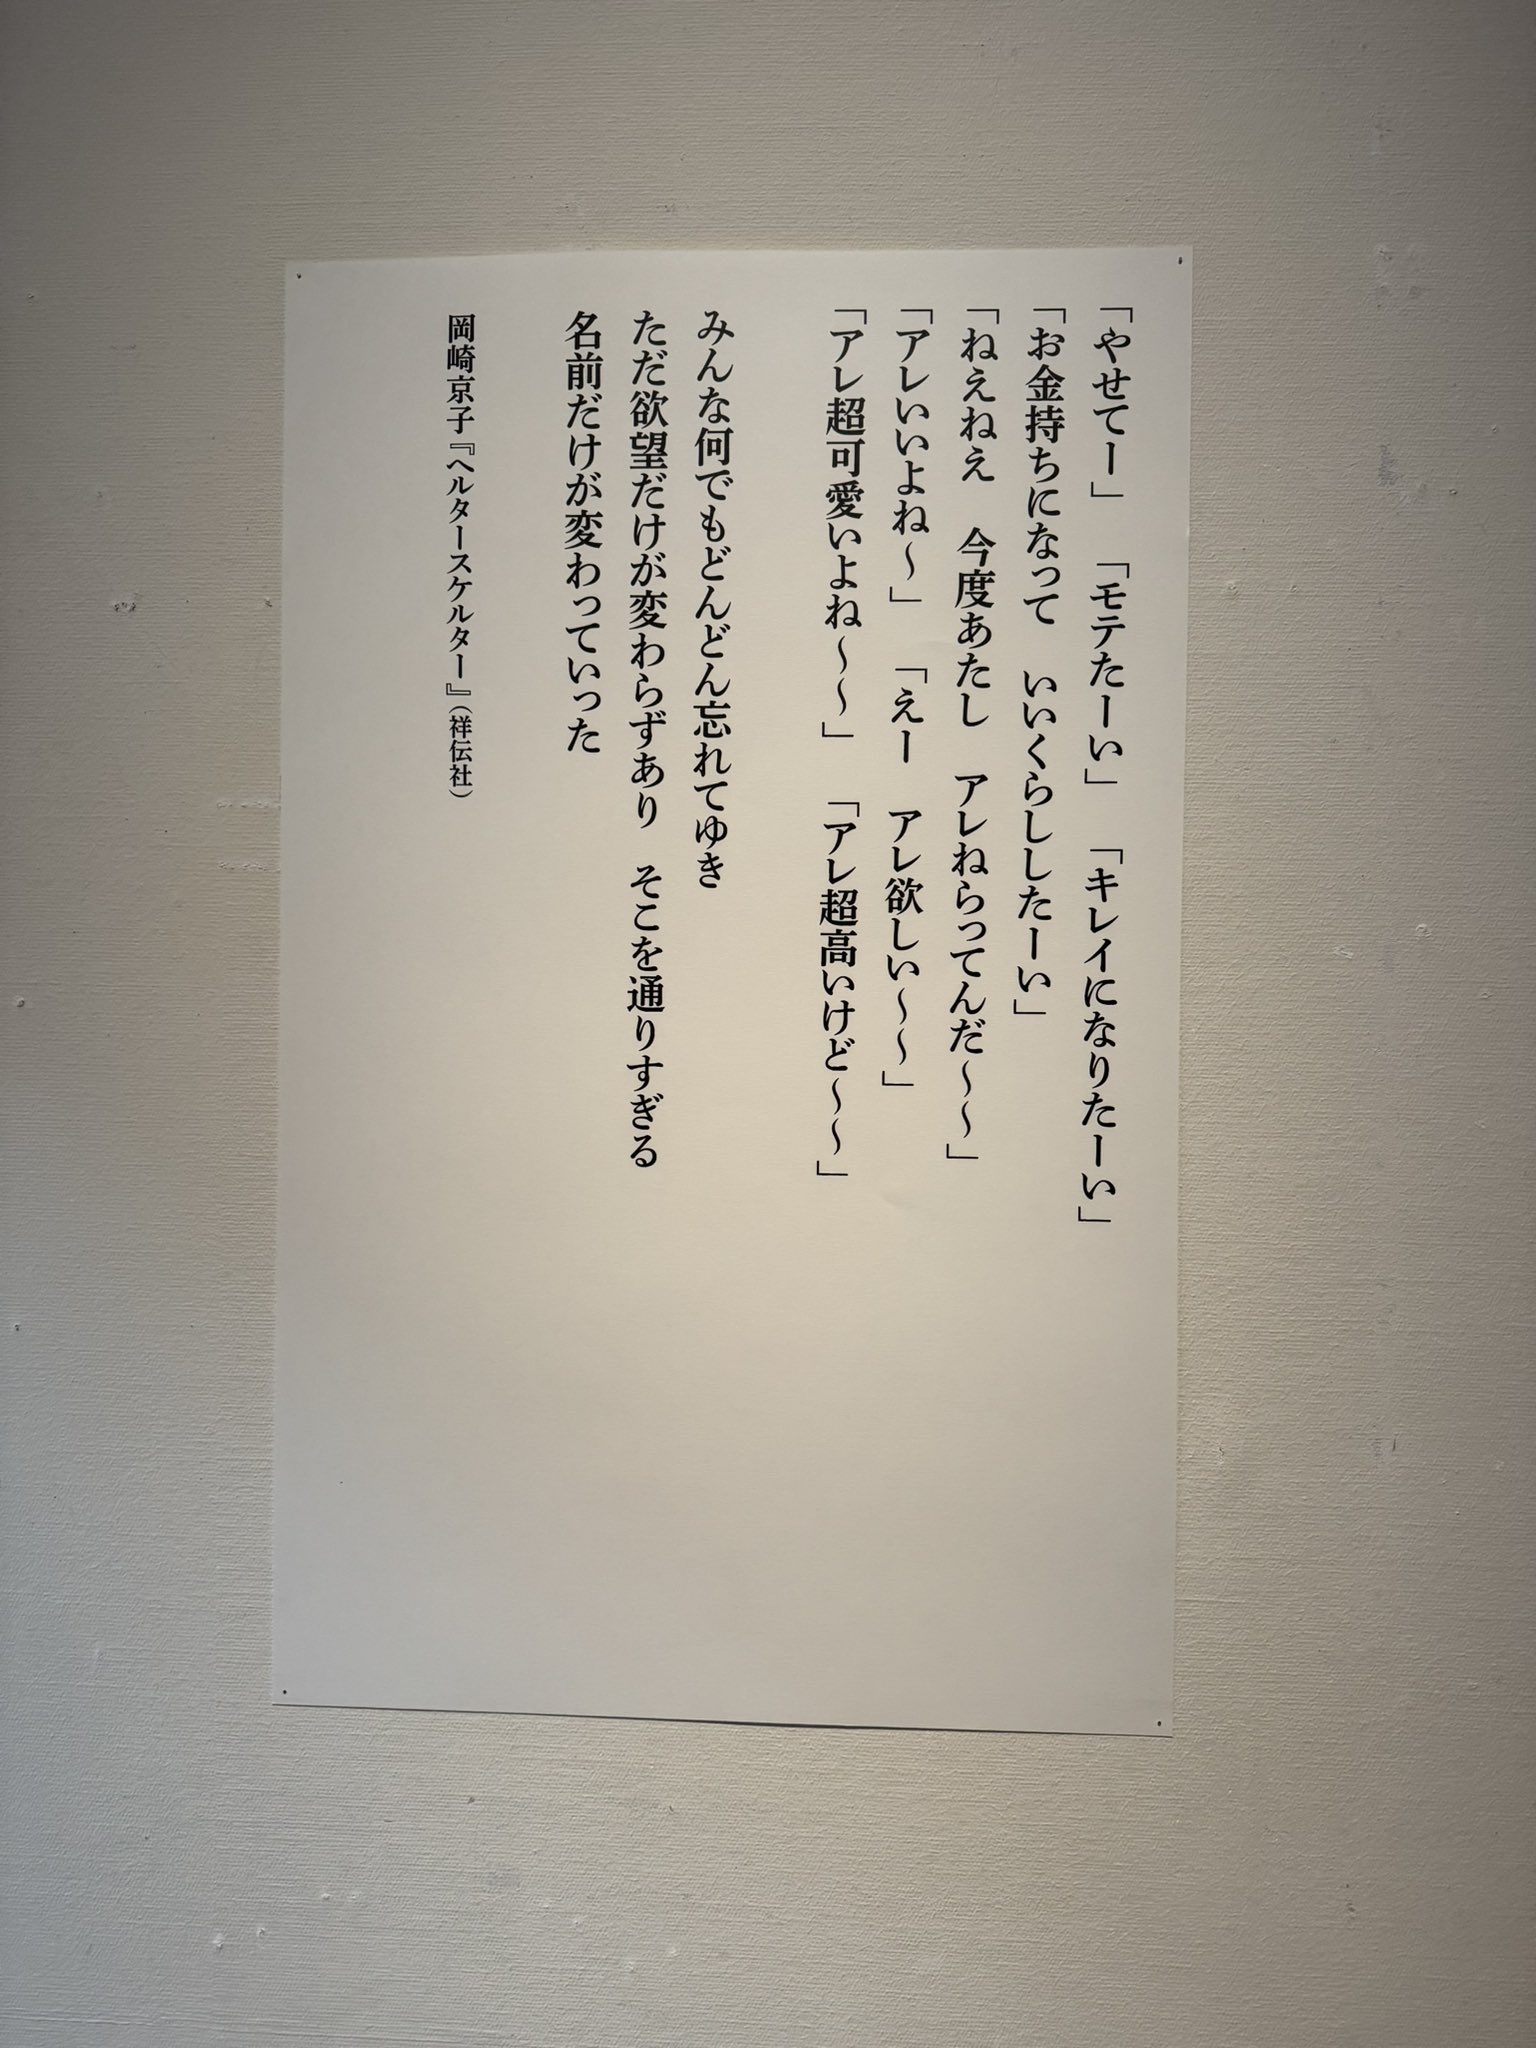 「やせてー」　「モテたーい」　「キレイになりたーい」
「お金持ちになって　いいくらししたーい」
「ねえねえ　今度あたし　アレねらってんだ〜〜」
「アレいいよね〜」　「えー　アレ欲しい〜〜」
「アレ超可愛いよね〜〜」　「アレ超高いけど〜〜」
みんな何でもどんどん忘れてゆき
ただ欲望だけが変わらずあり　そこを通りすぎる
名前だけが変わっていった
岡崎京子『ヘルタースケルター』（祥伝社）